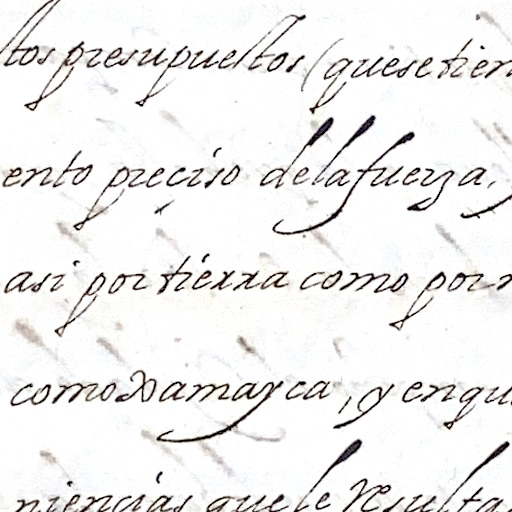 tos presupuestos (que se tien
ento preciso de la fuerza,
asi por tierra como por
como Xamayca, y en qu
niencias que le resulta